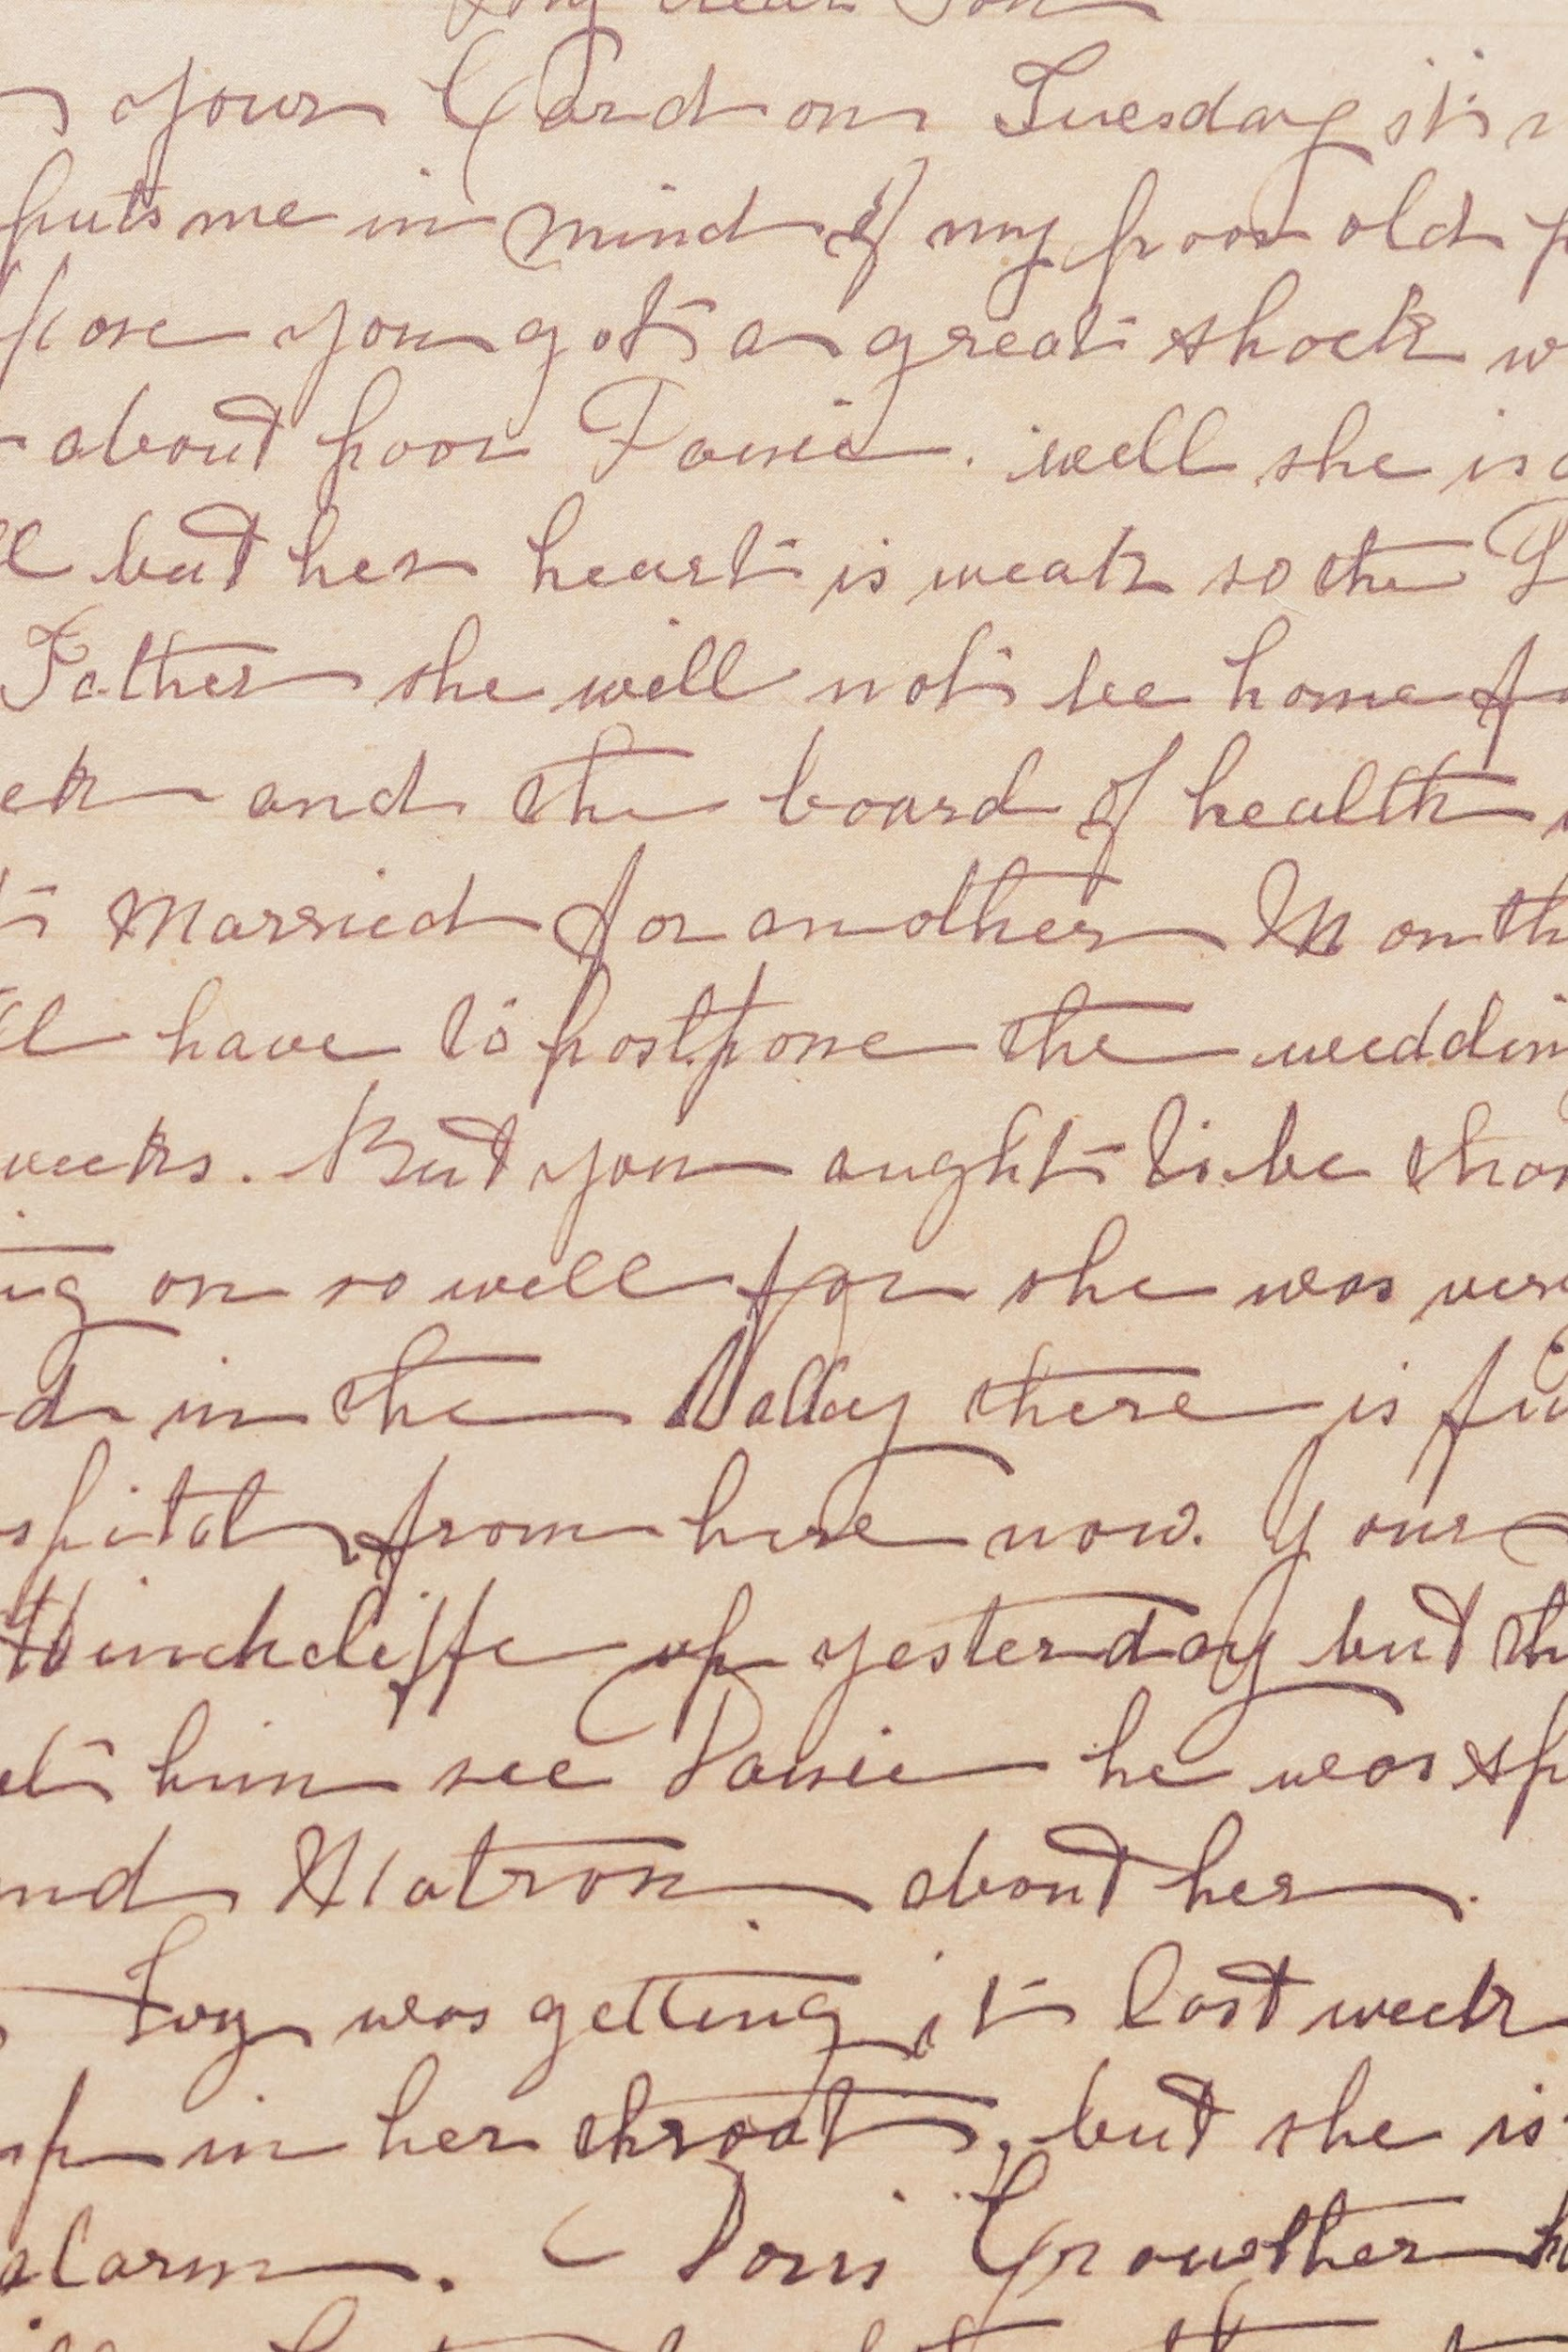 My dear Son
your Card on Tuesday it
puts me in mind of my poor old
pose you got a great shock w
about poor . well she is
ll but her heart is weak so the
Father she will not be home f
ek and the board of health
t Married for another Month
ll have to postpone the weddin
weeks. But you ought to be than
ing on so well for she was very
d in the Valley there is
spital from here now. Your
Hinchcliffe up yesterday but th
et him see he was sp
and Matron about her.
was getting it last week
up in her throat, but she is
alarm. Doris Crowther h